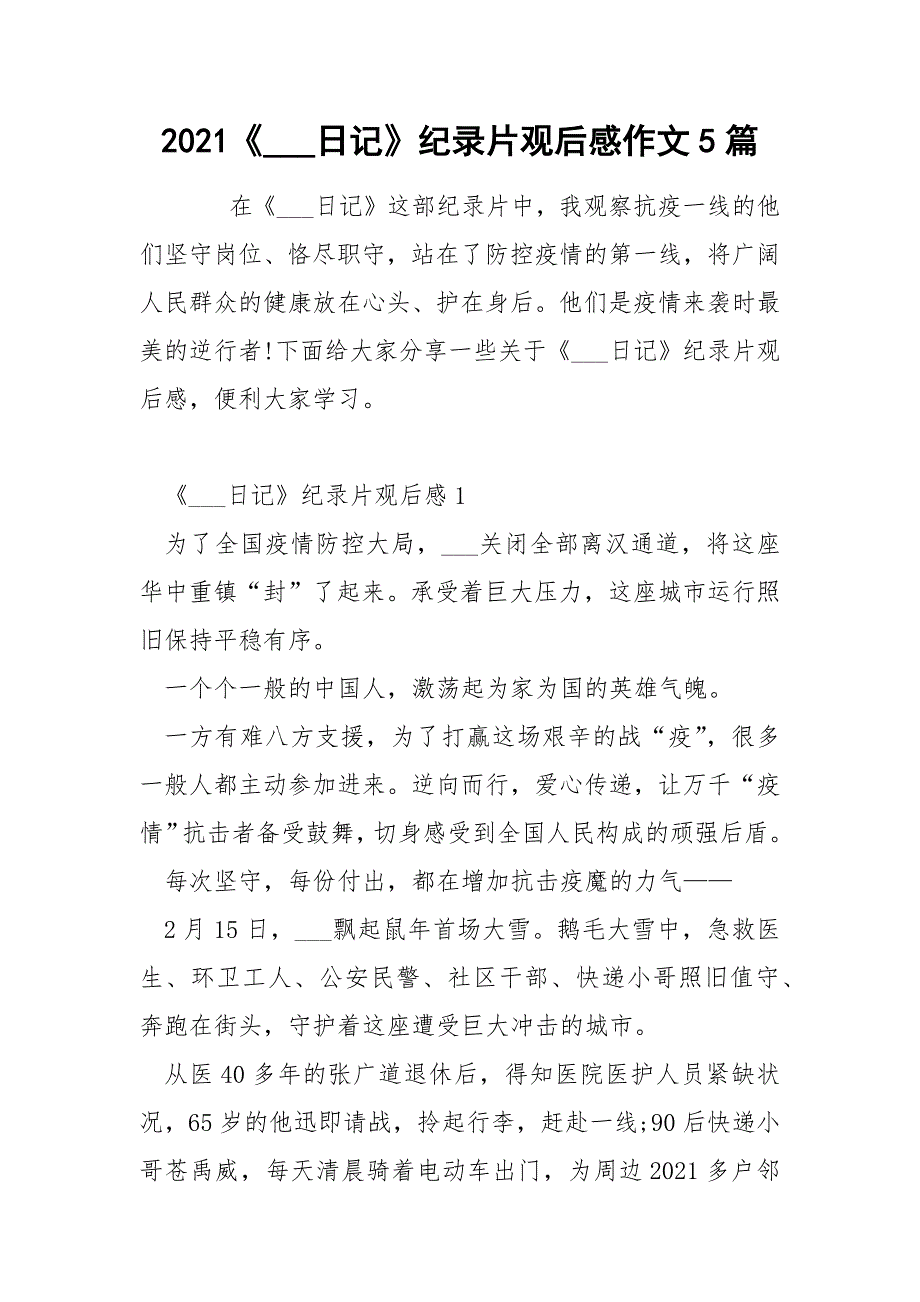 2021《___日记》纪录片观后感作文5篇
在《___日记》这部纪录片中，我观察抗疫一线的他
们坚守岗位、恪尽职守，站在了防控疫情的第一线，将广阔
人民群众的健康放在心头、护在身后。他们是疫情来袭时最
美的逆行者!下面给大家分享一些关于《___日记》纪录片观
后感，便利大家学习。
《___日记》纪录片观后感1
为了全国疫情防控大局，___关闭全部离汉通道，将这座
华中重镇“封”了起来。承受着巨大压力，这座城市运行照
旧保持平稳有序。
一个个一般的中国人，激荡起为家为国的英雄气魄。
一方有难八方支援，为了打赢这场艰辛的战“疫”，很多
一般人都主动参加进来。逆向而行，爱心传递，让万千“疫
情”抗击者备受鼓舞，切身感受到全国人民构成的顽强后盾。
每次坚守，每份付出，都在增加抗击疫魔的力气——
2月15日，___飘起鼠年首场大雪。鹅毛大雪中，急救医
生、环卫工人、公安民警、社区干部、快递小哥照旧值守、
奔跑在街头，守护着这座遭受巨大冲击的城市。
从医40多年的张广道退休后，得知医院医护人员紧缺状
况，65岁的他迅即请战，拎起行李，赶赴一线;90后快递小
哥苍禹威，每天清晨骑着电动车出门，为周边2021多户邻